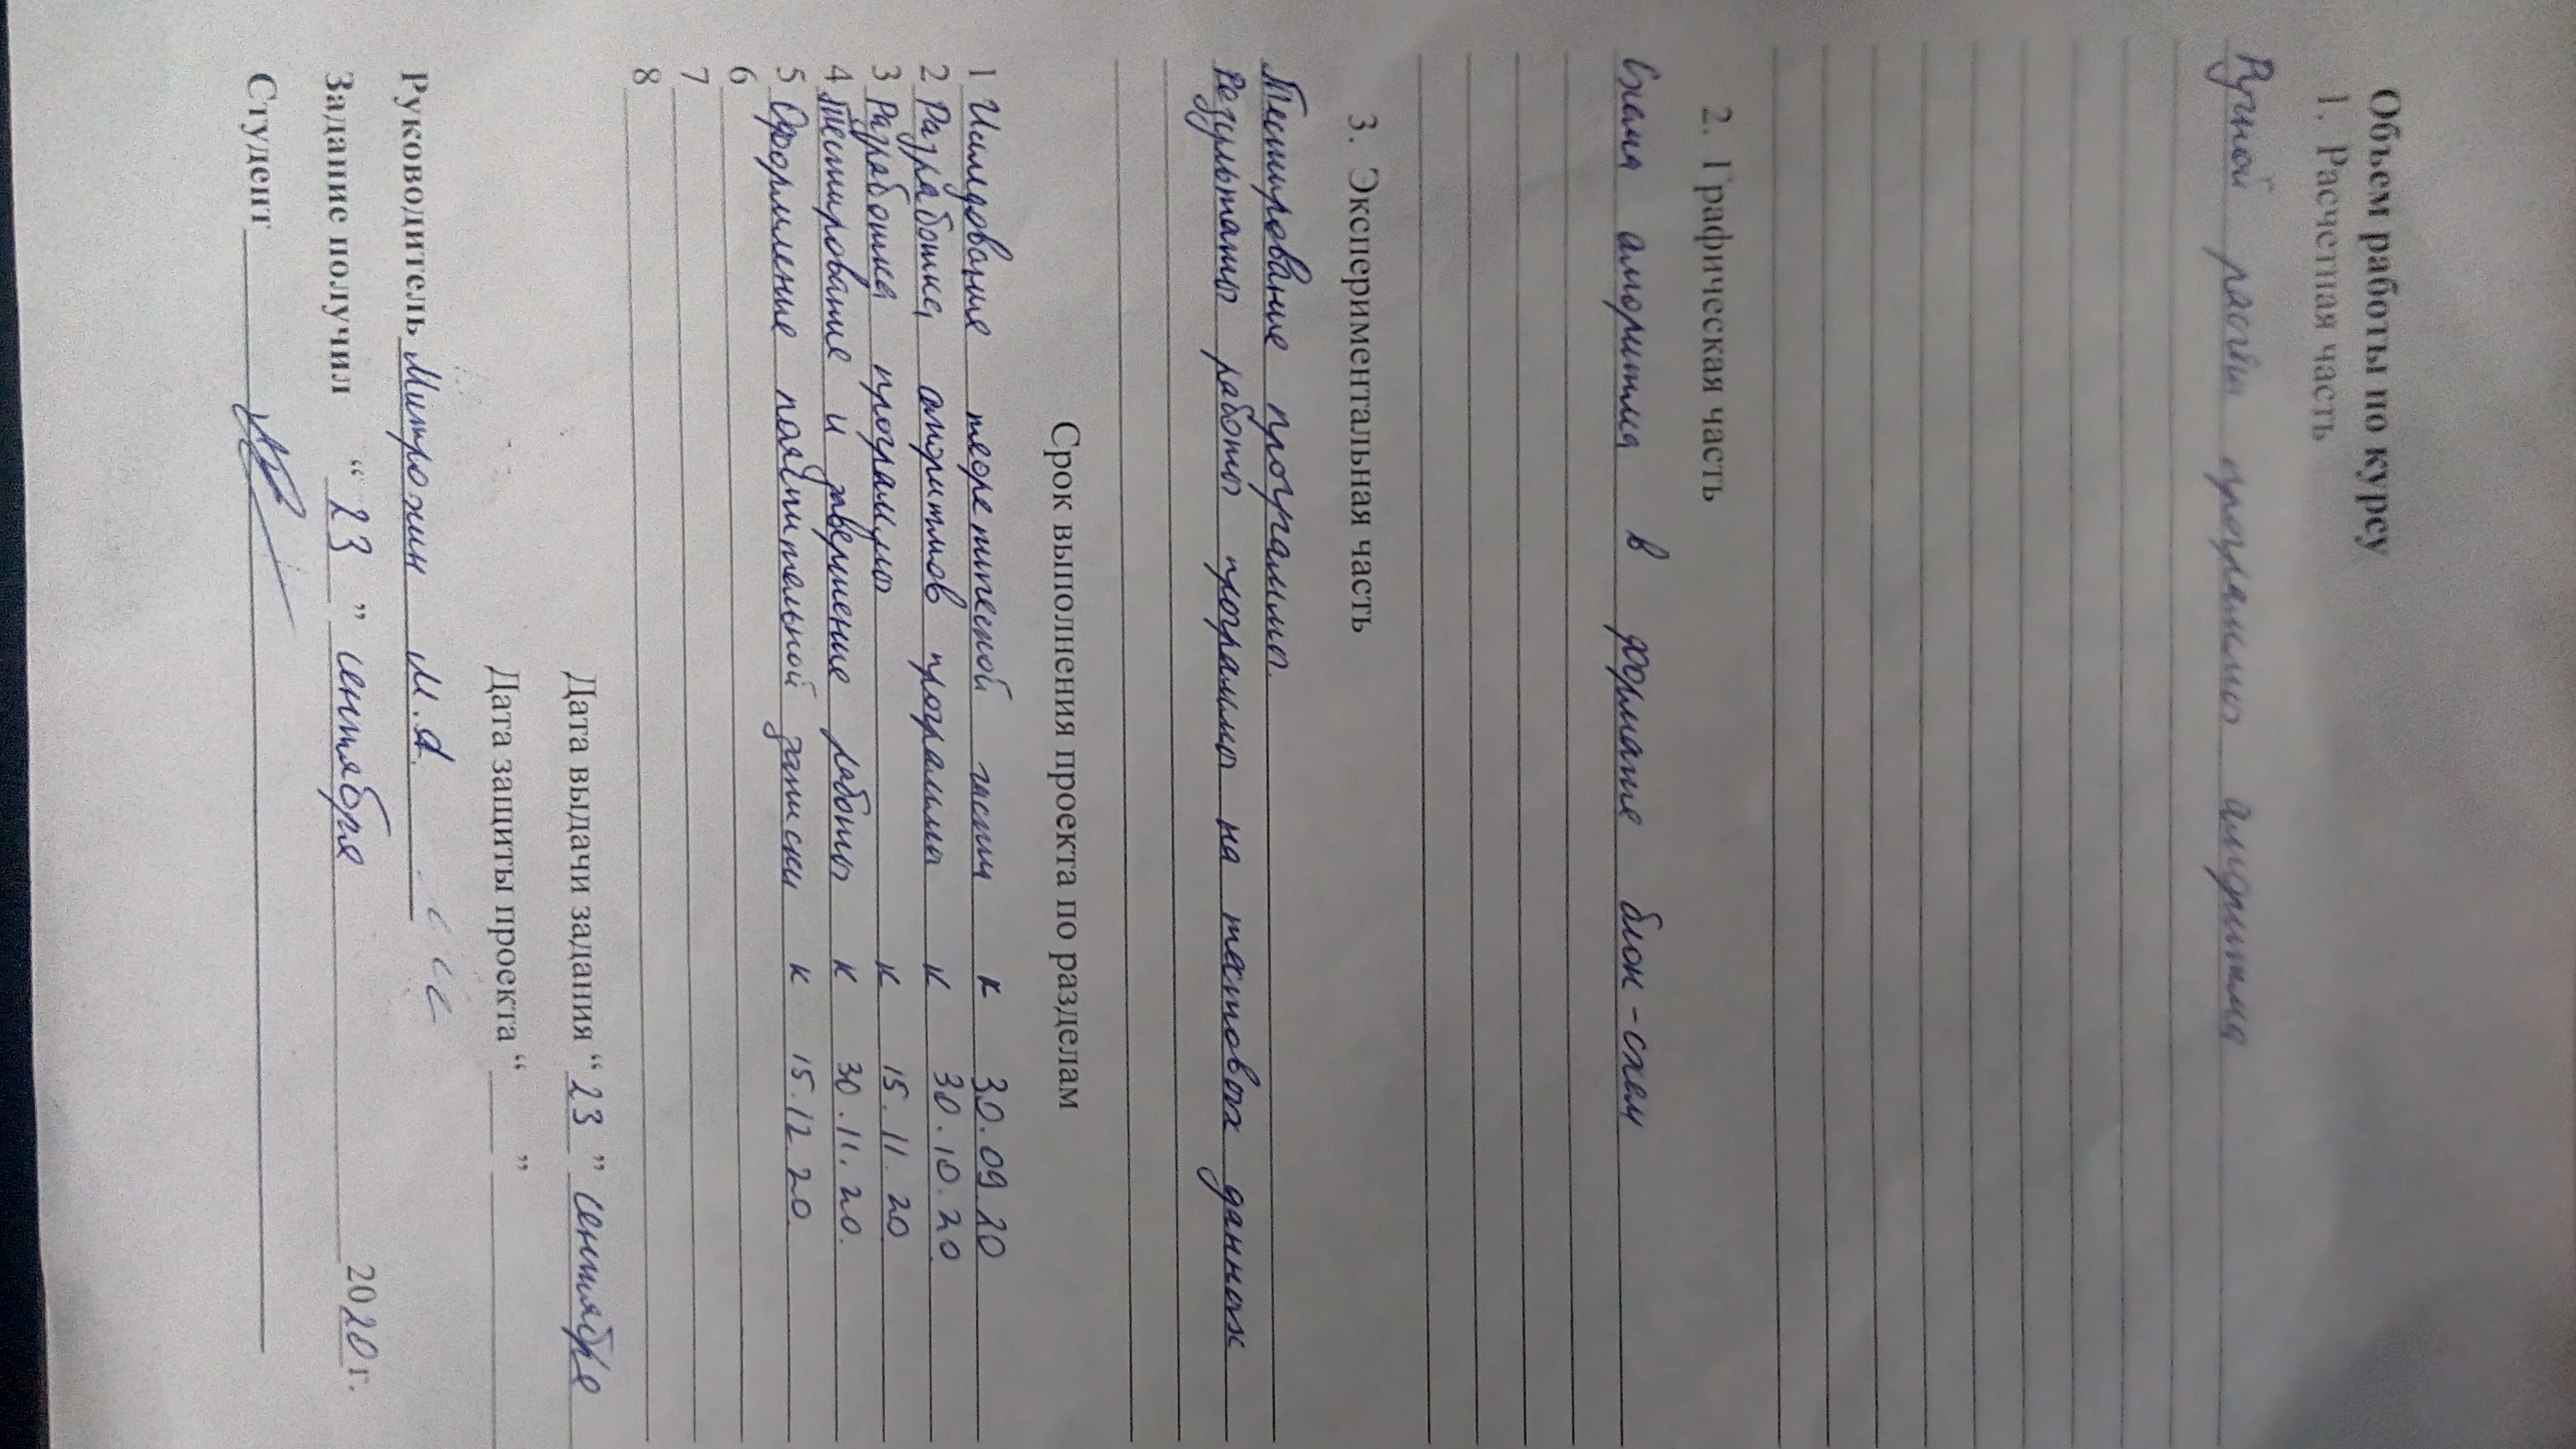 Объем работы по курсу
1. Расчетная часть
Ручной расчёт программы алгоритма
2. Графическая часть
Схема алгоритма в формате блок-схем
3. Экспериментальная часть
Тестирование программы.
Результаты работы программы на тестовых данных
Срок выполнения проекта по разделам
1 Исследование теоретической части к 30.09.20
2 Разработка алгоритмов программы к 30.10.20
3 Разработка программы к 15.11.20
4 Тестирование и завершение работы к 30.11.20.
5 Оформление пояснительной записки к 15.12.20.
6
7
8
Дата выдачи задания “ 23 ” сентября
Дата защиты проекта “ ”
Руководитель Митрохин М.А.
Задание получил “ 23 ” сентября 2020 г.
Студент